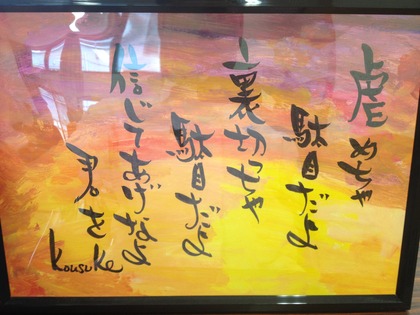 虐めちゃ
駄目だよ
裏切っちゃ
駄目だよ
信じてあげなよ
君を
Kousuke